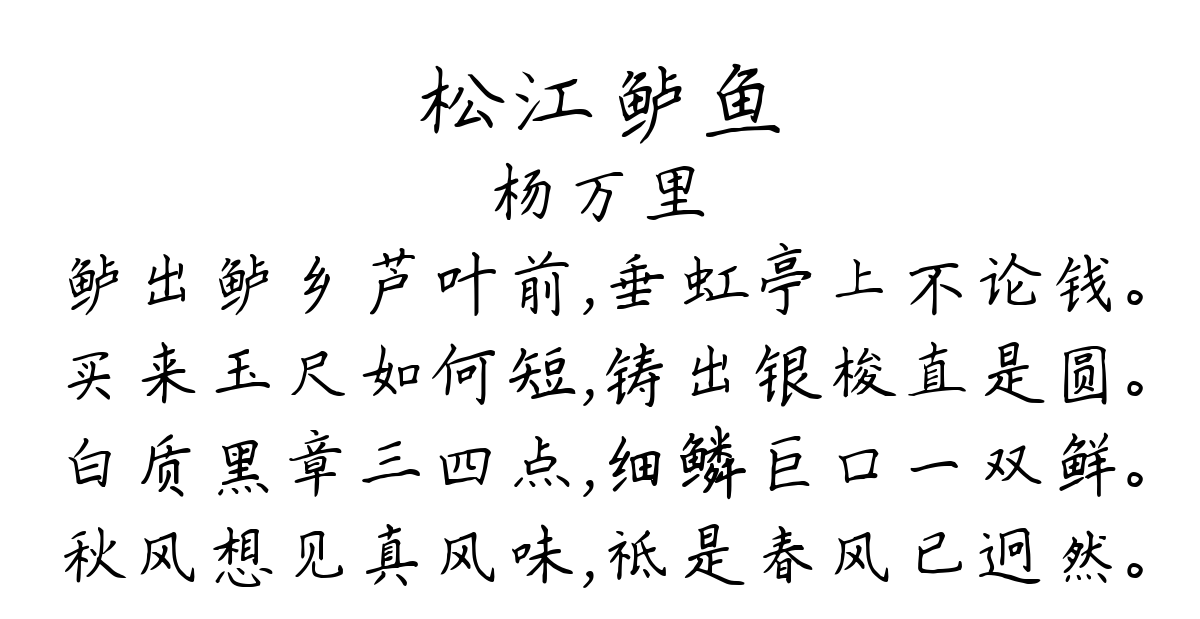 松江鲈鱼
杨万里
鲈出鲈乡芦叶前,垂虹亭上不论钱。
买来玉尺如何短,铸出银梭直是圆。
白质黑章三四点,细鳞巨口一双鲜。
秋风想见真风味,祗是春风已迥然。